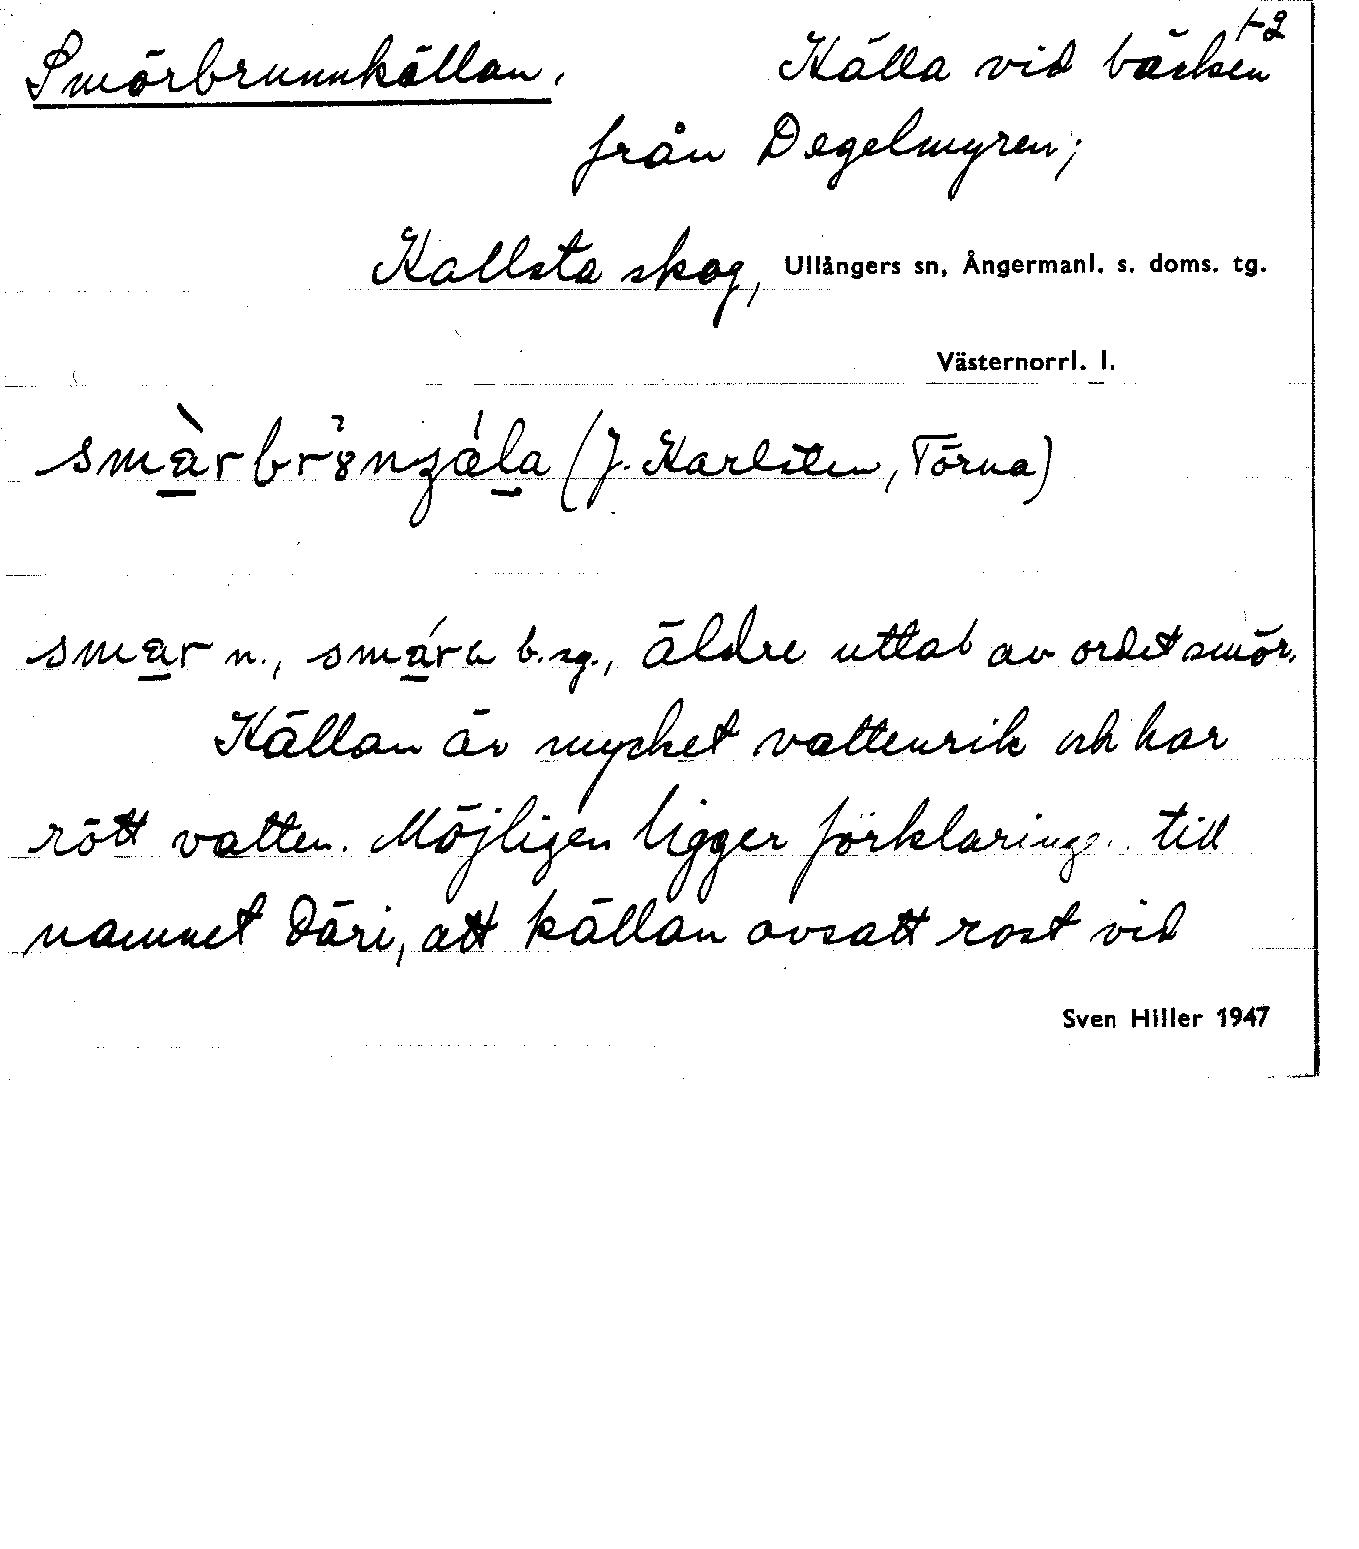 1-2
Smörbrunnkällan. Källa vid bäcken
från Degelmyren;
Kallsta skog, Ullångers sn, Ångermanl. s. doms. tg.
Västernorrl. l.
(J. Karlsten, Törna)
smar n., smára b.sg., äldre uttal av ordet smör.
Källan är mycket vattenrik och har
rött vatten. Möjligen ligger förklaringen till
namnet däri, att källan avsatt rost vid
Sven Hiller 1947